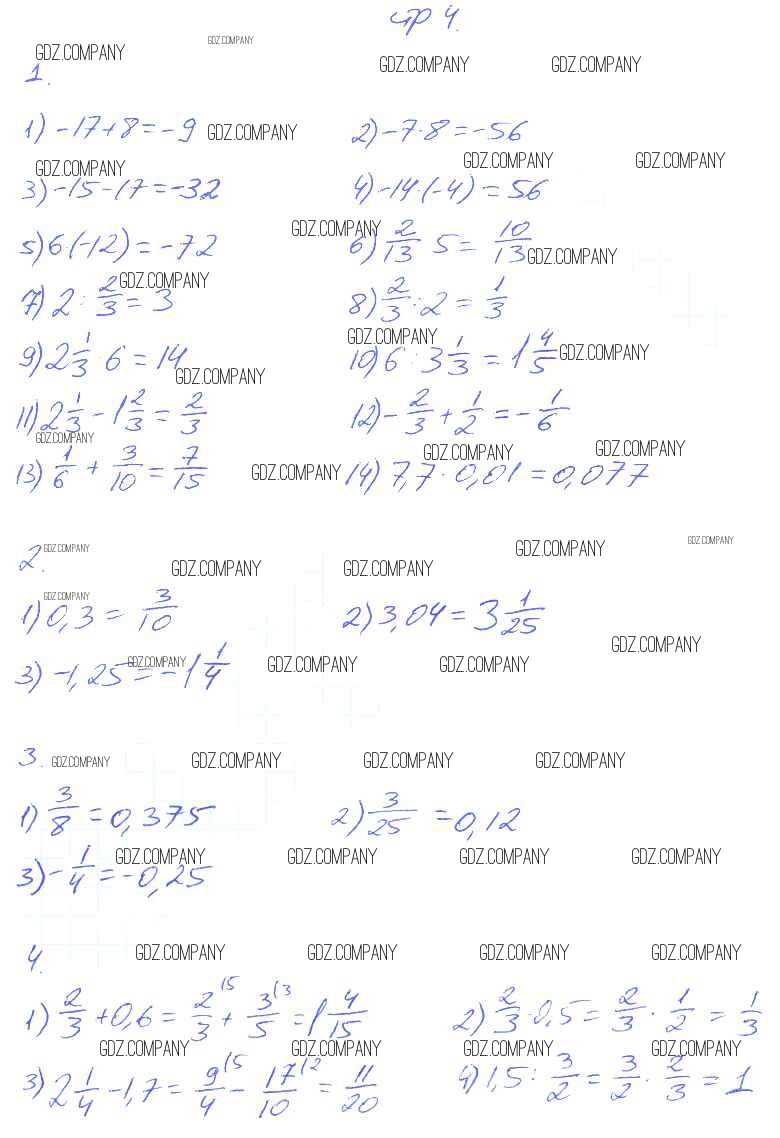 стр 4.
GDZ.COMPANY GDZ.COMPANY GDZ.COMPANY GDZ.COMPANY
1.
1) -17+8=-9 GDZ.COMPANY 2) -7·8=-56
GDZ.COMPANY GDZ.COMPANY GDZ.COMPANY
3) -15-17=-32 4) -14·(-4)=56
5) 6·(-12)=-72 GDZ.COMPANY 6) 2/13 5= 10/13 GDZ.COMPANY
7) 2: 2/3=3 GDZ.COMPANY 8) 2/3:2=1/3
9) 2 1/3·6=14 GDZ.COMPANY 10) 6:3 1/3=1 4/5 GDZ.COMPANY
GDZ.COMPANY
11) 2 1/3-1 2/3=2/3 12) -2/3+1/2=-1/6
GDZ.COMPANY GDZ.COMPANY GDZ.COMPANY
13) 1/6+3/10=7/15 GDZ.COMPANY 14) 7,7·0,01=0,077
2. GDZ.COMPANY GDZ.COMPANY GDZ.COMPANY GDZ.COMPANY GDZ.COMPANY
GDZ.COMPANY
1) 0,3=3/10 2) 3,04=3 1/25
GDZ.COMPANY
3) -1,25=-1 1/4 GDZ.COMPANY GDZ.COMPANY GDZ.COMPANY
3. GDZ.COMPANY GDZ.COMPANY GDZ.COMPANY GDZ.COMPANY
1) 3/8=0,375 2) 3/25=0,12
GDZ.COMPANY GDZ.COMPANY GDZ.COMPANY GDZ.COMPANY
3) -1/4=-0,25
4. GDZ.COMPANY GDZ.COMPANY GDZ.COMPANY GDZ.COMPANY
1) 2/3+0,6=2/3(5+3/5(3=1 4/15 2) 2/3·0,5=2/3·1/2=1/3
GDZ.COMPANY GDZ.COMPANY GDZ.COMPANY GDZ.COMPANY
3) 2 1/4-1,7=9/4(5-17/10(2=11/20 4) 1,5:3/2=3/2·2/3=1